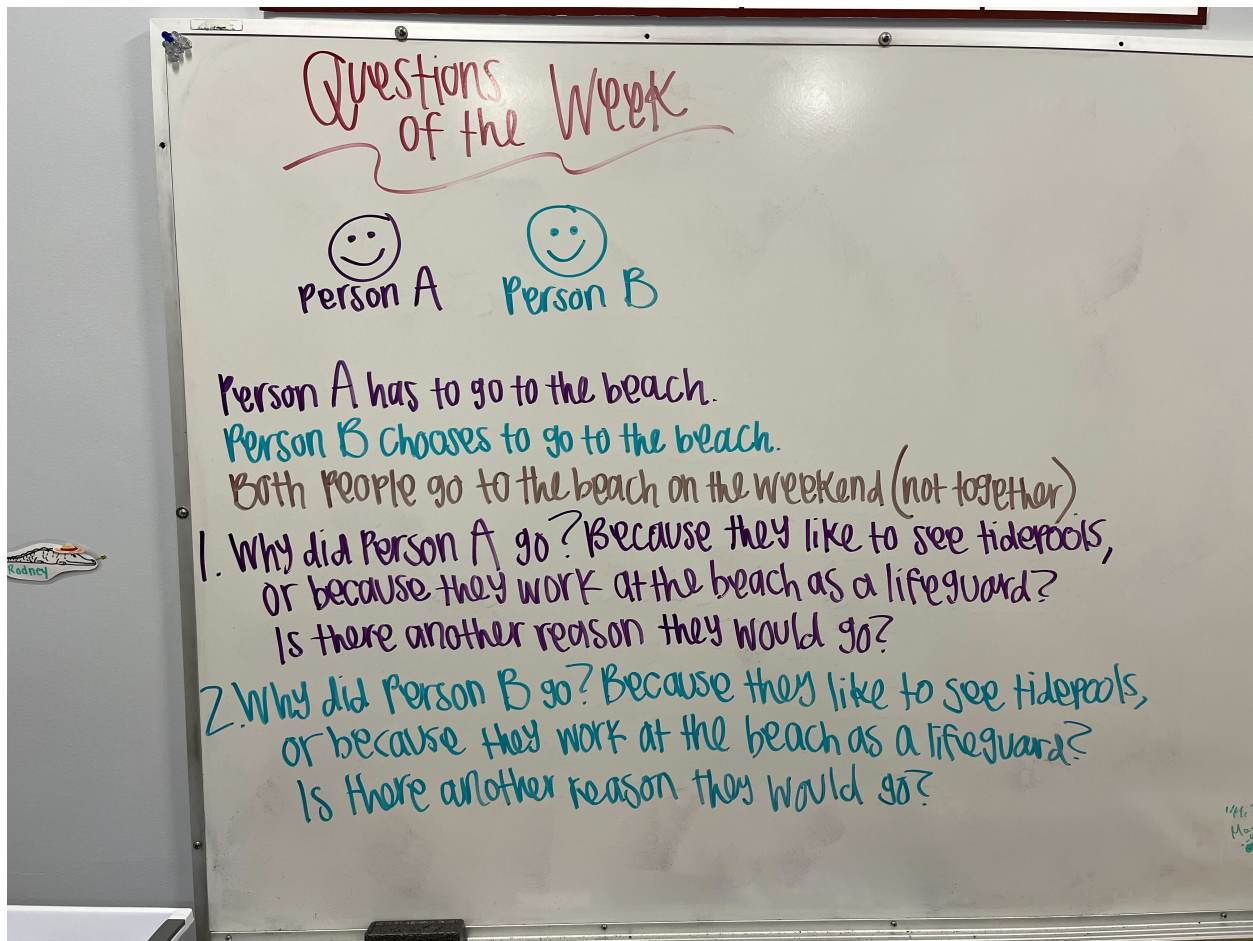 Questions
of the Week
Person A
Person B
Person A has to go to the beach.
Person B chooses to go to the beach.
Both People go to the beach on the weekend (not together)
1. Why did Person A go? Because they like to see tidepools,
or because they work at the beach as a lifeguard?
Is there another reason they would go?
2. Why did Person B go? Because they like to see tidepools,
or because they work at the beach as a lifeguard?
Is there another reason they would go?
Rodney